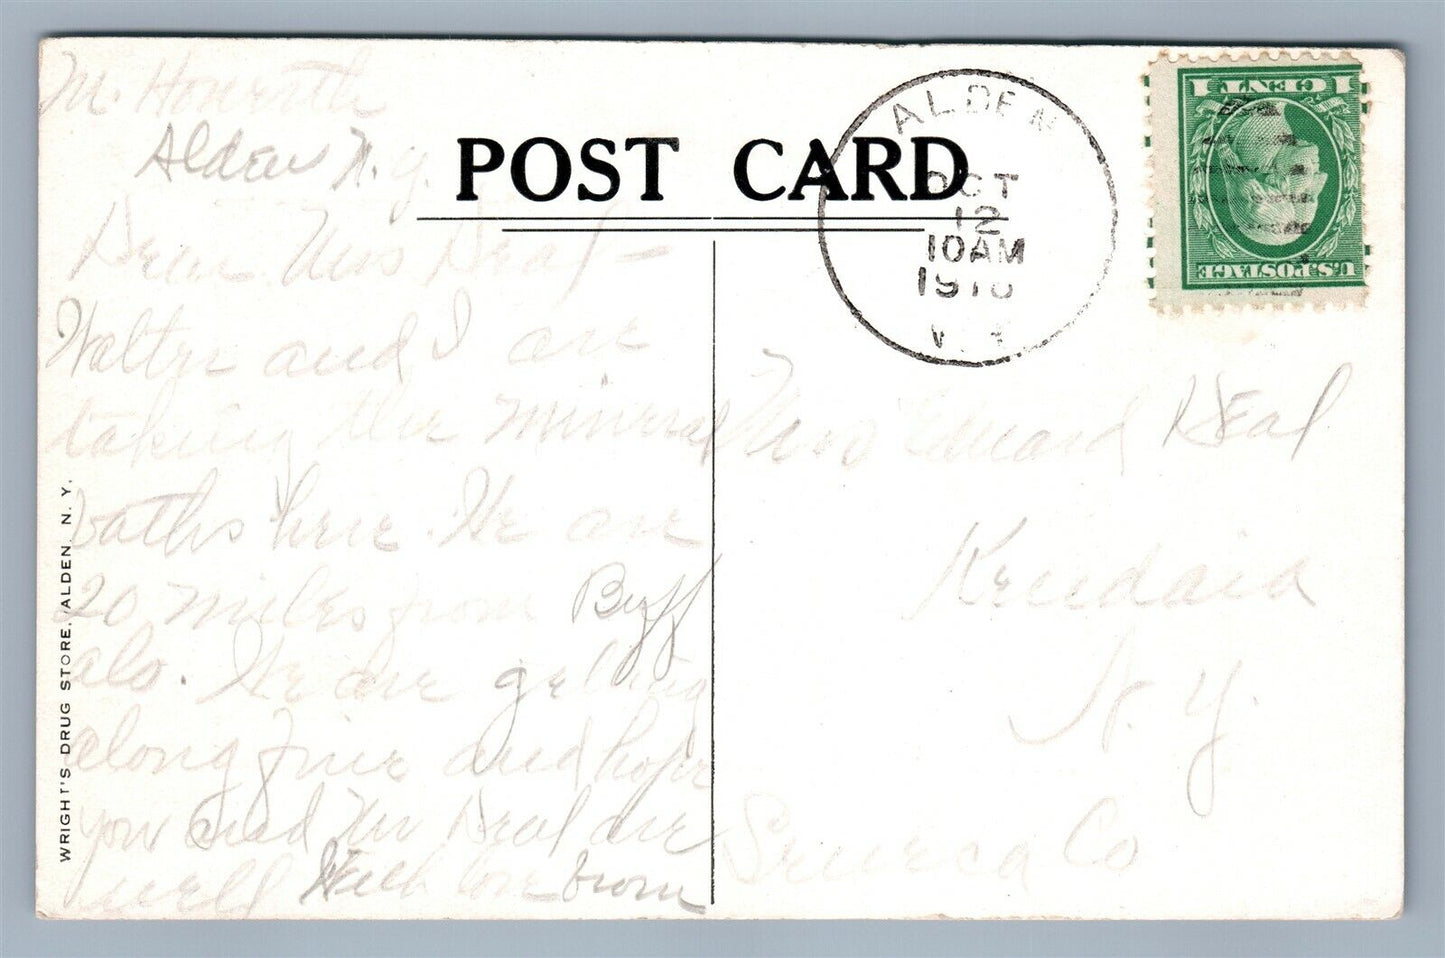 M. Howerth
Alden N.Y.
POST CARD
ALDEN
OCT
12
10AM
1 CENT 1
U.S. POSTAGE
Dear Mrs Deal –
Walter and I are
taking the mineral
baths here. We are
20 miles from Buff
alo. We are getting
along fine and hope
you and Mr Deal are
well With love from
Mrs Edward Deal
Kendaia
N. Y.
Seneca Co
WRIGHT'S DRUG STORE, ALDEN, N. Y.